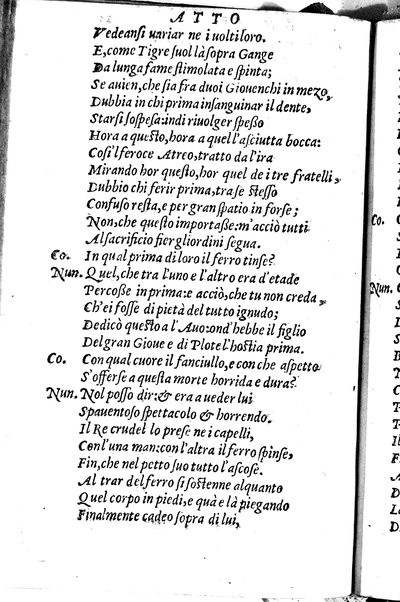 ATTO
Vedeansi uariar ne i uolti loro.
E, come Tigre suol là sopra Gange
Da lunga fame stimolata e spinta;
Se auien, che sia fra duoi Giouenchi in mezo,
Dubbia in chi prima insanguinar il dente,
Starsi sospesa: indi riuolger spesso
Hora a questo, hora a quell'asciutta bocca:
Così'l feroce Atreo, tratto da l'ira
Mirando hor questo, hor quel de i tre fratelli,
Dubbio chi ferir prima, tra se stesso
Confuso resta, e per gran spatio in forse;
Non, che questo importasse: m'acciò tutti
Al sacrificio fier gli ordini segua.
Co. In qual prima di loro il ferro tinse?
Nun. Quel, che tra l'uno e l'altro era d'etade
Percosse in prima: e acciò, che tu non creda,
Ch'ei fosse di pietà del tutto ignudo;
Dedicò questo a l'Auo: ond'hebbe il figlio
Del gran Gioue e di Plote l'hostia prima.
Co. Con qual cuore il fanciullo, e con che aspetto
S'offerse a questa morte horrida e dura?
Nun. Nol posso dir: & era a ueder lui
Spauentoso spettacolo & horrendo.
Il Re crudel lo prese ne i capelli,
Con l'una man: con l'altra il ferro spinse,
Fin, che nel petto suo tutto l'ascose.
Al trar del ferro si sostenne alquanto
Quel corpo in piedi, e quà e là piegando
Finalmente cadeo sopra di lui,
Co.
Nun.